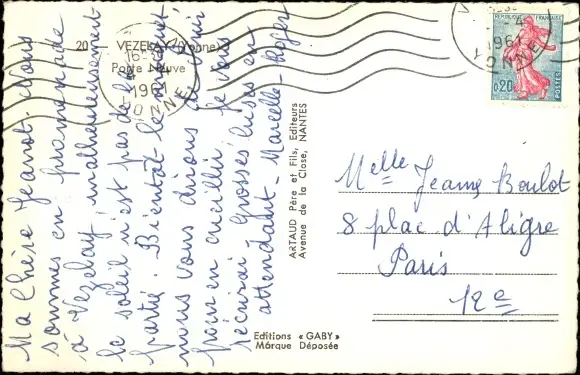 20 - VEZELAY (Yonne)
Porte Neuve
Ma Chère Jeanot. Nous
sommes en promenade
à Vezelay malheureusement
le soleil n'est pas de la
partie. Bientôt le muguet
nous vous dirons
pour en cueillir je vous
écrirai. Grosses bises en
attendant. Marcelle-Roger
ARTAUD Père et Fils, Editeurs
Avenue de la Close, NANTES
Editions « GABY »
Marque Déposée
REPUBLIQUE FRANÇAISE
0,20
POSTES
1961
YONNE
1961
YONNE
Melle Jeanne Boulot
8 place d'Aligre
Paris
12e